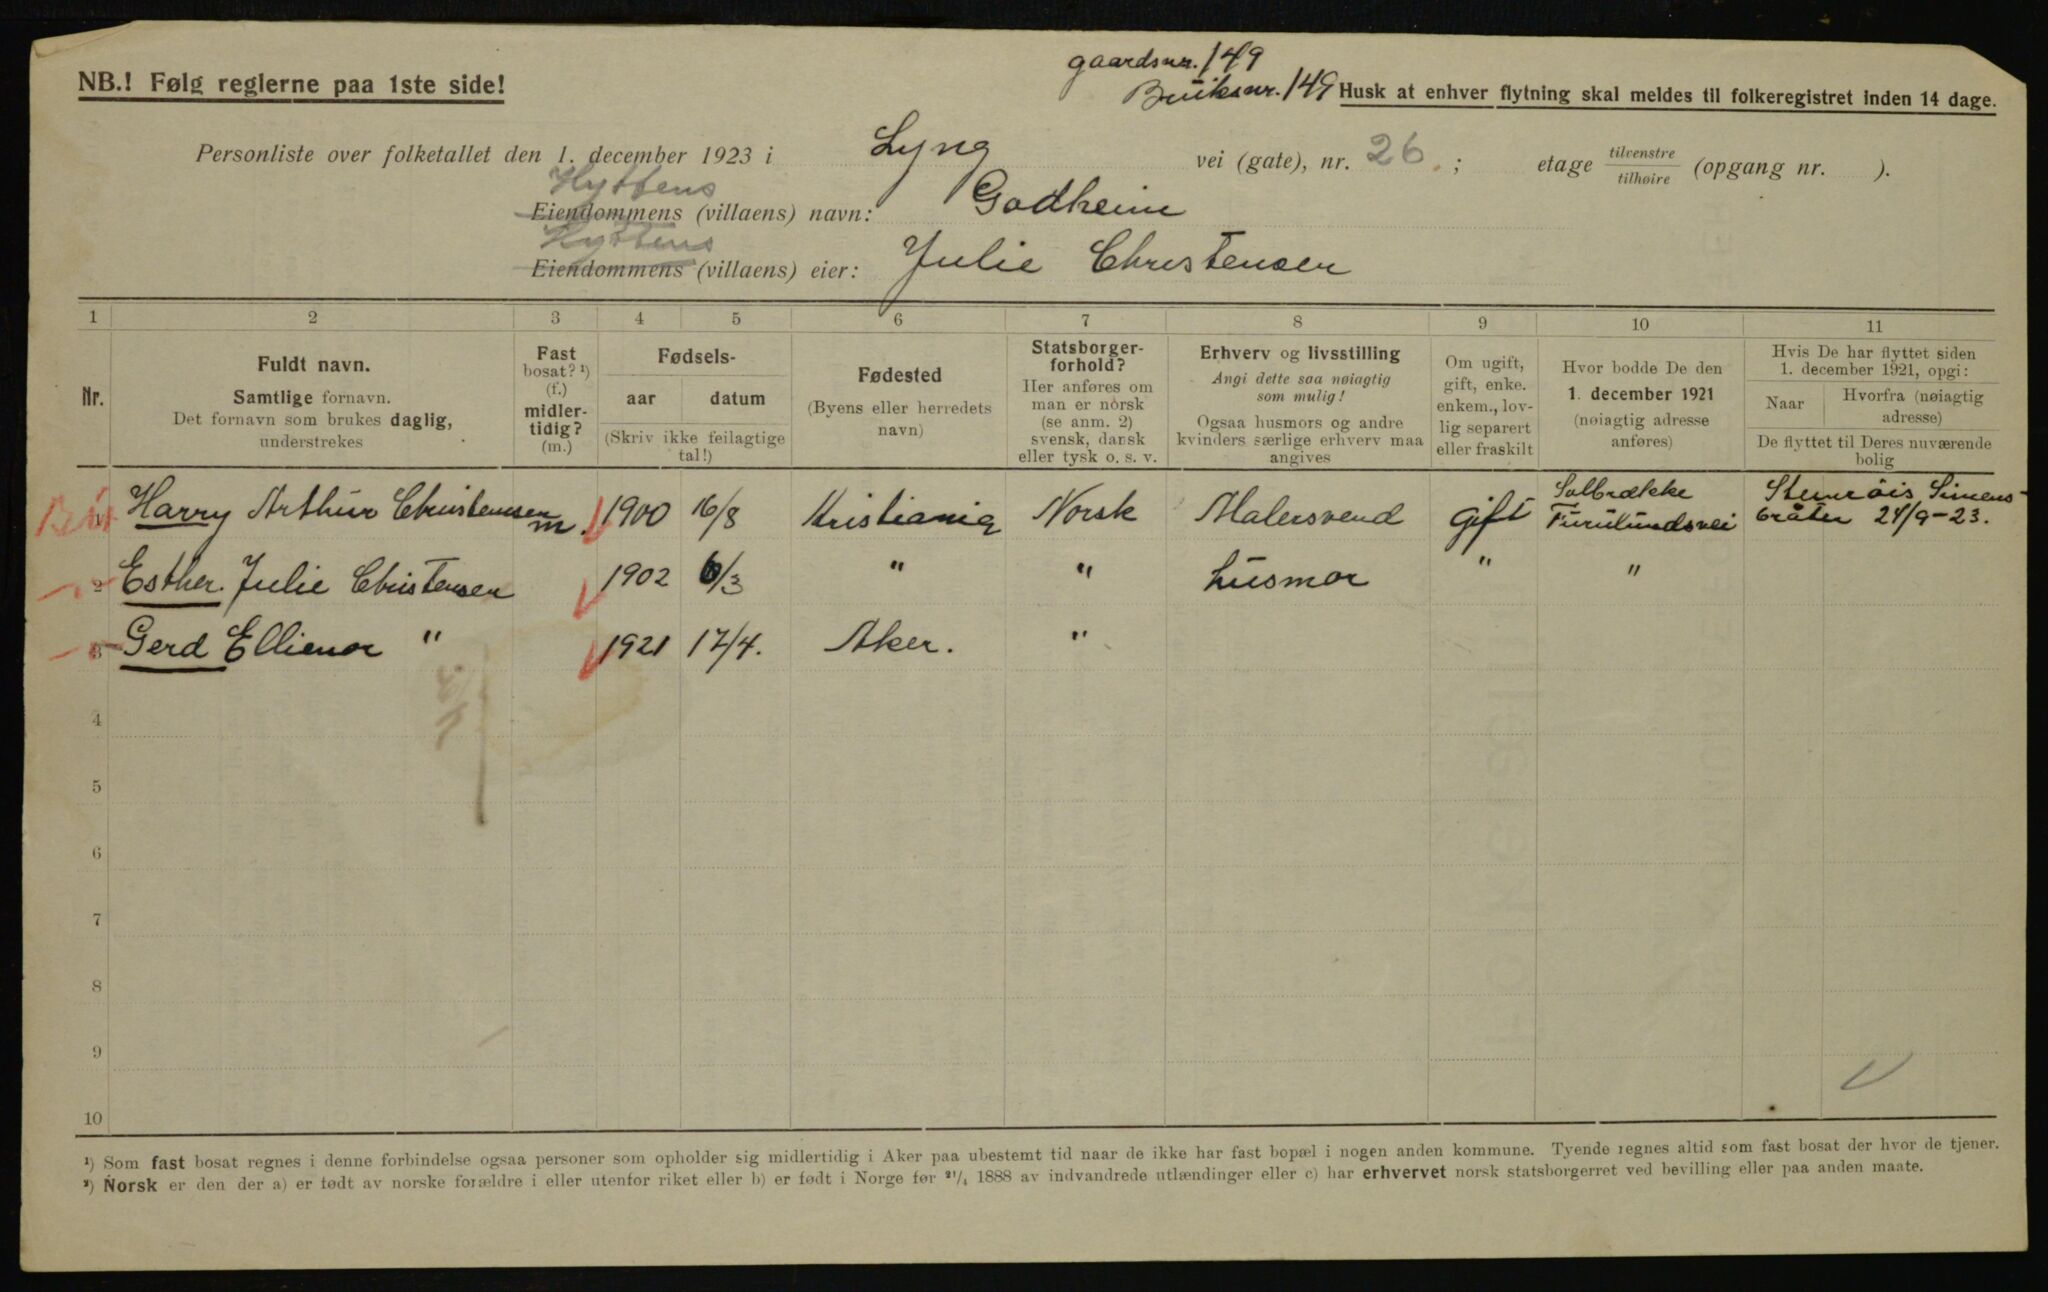 gaardsnr. 149
NB.! Følg reglerne paa 1ste side!
Bruksnr. 149 Husk at enhver flytning skal meldes til folkeregistret inden 14 dage.
Personliste over folketallet den 1. december 1923 i Lyng vei (gate), nr. 26. ; etage tilvenstre / tilhøire (opgang nr. ).
Hyttens
Eiendommens (villaens) navn: Godheim
Hyttens
Eiendommens (villaens) eier: Julie Christensen
1 2 3 4 5 6 7 8 9 10 11
Nr.
Fuldt navn.
Samtlige fornavn.
Det fornavn som brukes daglig,
understrekes
Fast
bosat? ¹)
(f.)
midler-
tidig?
(m.)
Fødsels-
aar datum
(Skriv ikke feilagtige
tal!)
Fødested
(Byens eller herredets
navn)
Statsborger-
forhold?
Her anføres om
man er norsk
(se anm. 2)
svensk, dansk
eller tysk o. s. v.
Erhverv og livsstilling
Angi dette saa nøiagtig
som mulig!
Ogsaa husmors og andre
kvinders særlige erhverv maa
angives
Om ugift,
gift, enke.
enkem., lov-
lig separert
eller fraskilt
Hvor bodde De den
1. december 1921
(nøiagtig adresse
anføres)
Hvis De har flyttet siden
1. december 1921, opgi:
Naar
Hvorfra (nøiagtig
adresse)
De flyttet til Deres nuværende
bolig
1 Harry Arthur Christensen m. 1900 16/8 Kristiania Norsk Malersvend gift Solbrække
Furulundsvei
24/9-23.
2 Esther. Julie Christensen 1902 6/3 " " husmor " "
3 Gerd Ellienor " 1921 17/4. Aker. "
4
5
6
7
8
9
10
¹) Som fast bosat regnes i denne forbindelse ogsaa personer som opholder sig midlertidig i Aker paa ubestemt tid naar de ikke har fast bopæl i nogen anden kommune. Tyende regnes altid som fast bosat der hvor de tjener.
²) Norsk er den der a) er født av norske forældre i eller utenfor riket eller b) er født i Norge før ²¹/₄ 1888 av indvandrede utlændinger eller c) har erhvervet norsk statsborgerret ved bevilling eller paa anden maate.